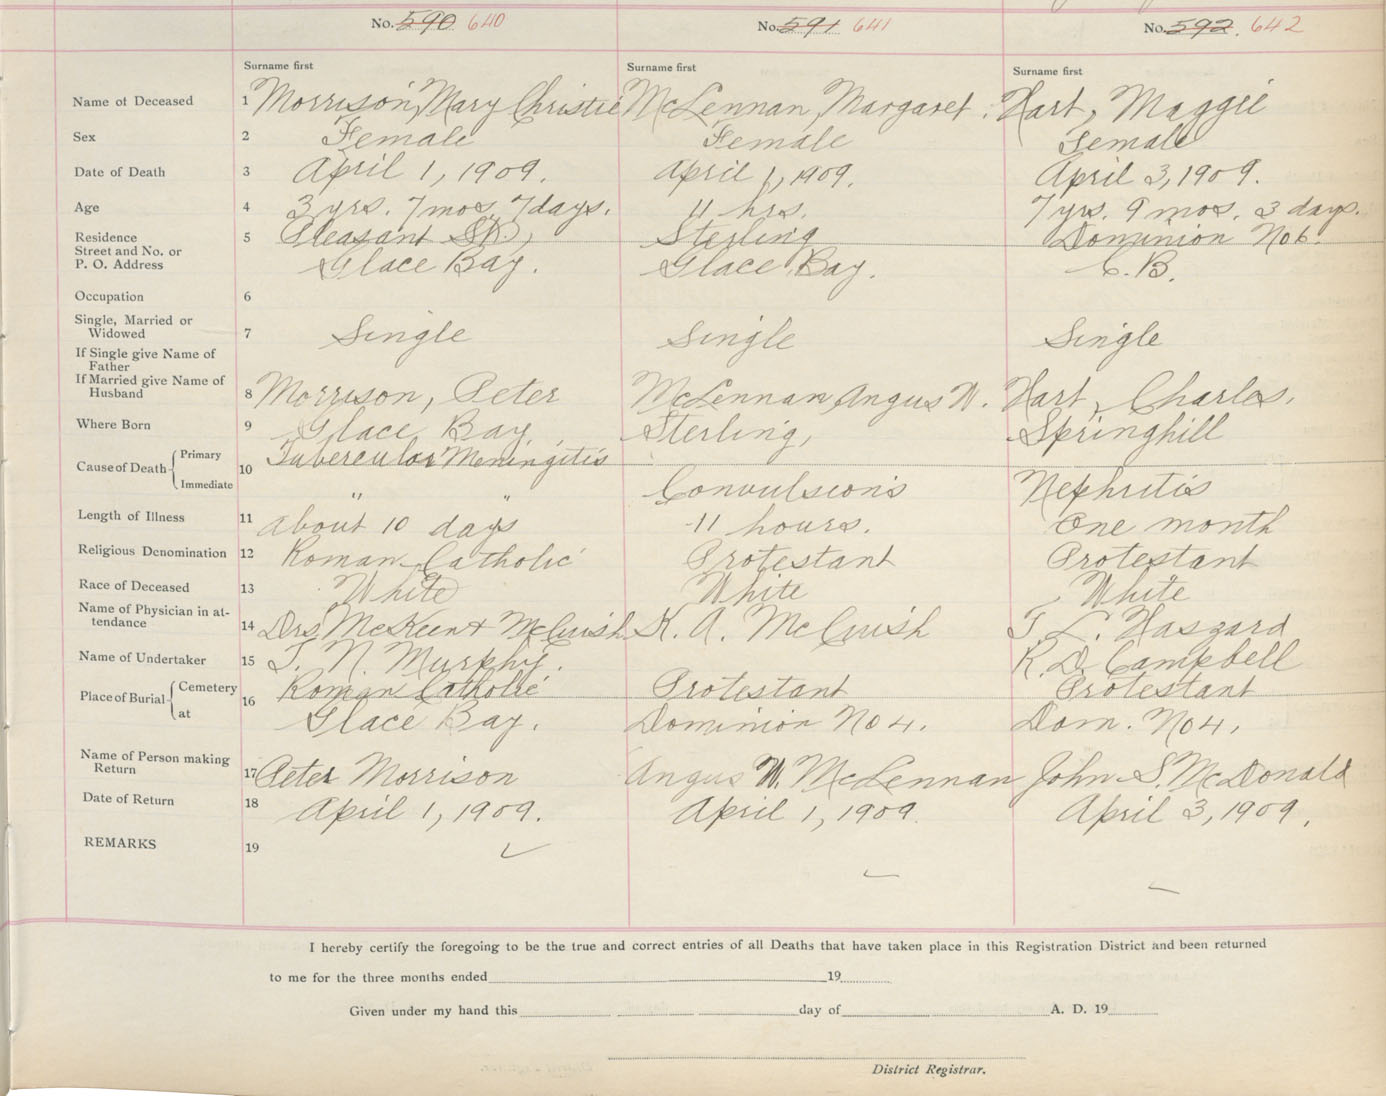 No. 590 640 No. 591 641 No. 592. 642
Surname first Surname first Surname first
Name of Deceased 1 Morrison, Mary Christie McLennan, Margaret. Hart, Maggie
Sex 2 Female Female Female
Date of Death 3 April 1, 1909. April 1, 1909. April 3, 1909.
Age 4 3 yrs. 7 mos. 7 days. 11 hrs. 7 yrs. 9 mos. 3 days.
Residence 5 Pleasant St., Sterling Dominion No 6.
Street and No. or
P. O. Address Glace Bay. Glace Bay. C. B.
Occupation 6
Single, Married or
Widowed 7 Single Single Single
If Single give Name of
Father
If Married give Name of
Husband 8 Morrison, Peter McLennan Angus W. Hart, Charles.
Where Born 9 Glace Bay, Sterling, Springhill
Cause of Death Primary 10 Tubercular Meningitis
Immediate " " Convulsions Nephritis
Length of Illness 11 about 10 days 11 hours. One month
Religious Denomination 12 Roman Catholic Protestant Protestant
Race of Deceased 13 White White White
Name of Physician in at-
tendance 14 Drs McKeen & McCuish K. A. McCuish T. L. Haszard
Name of Undertaker 15 J. N. Murphy. R. D. Campbell
Place of Burial Cemetery 16 Roman Catholic Protestant Protestant
at Glace Bay. Dominion No 4. Dom. No 4.
Name of Person making
Return 17 Peter Morrison Angus W. McLennan John S. McDonald
Date of Return 18 April 1, 1909. April 1, 1909. April 3, 1909.
REMARKS 19
I hereby certify the foregoing to be the true and correct entries of all Deaths that have taken place in this Registration District and been returned
to me for the three months ended 19
Given under my hand this day of A. D. 19
District Registrar.